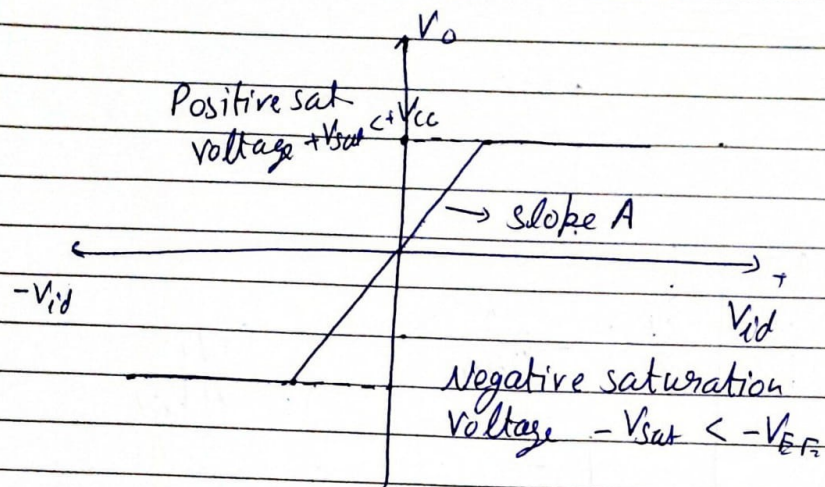 V₀
Positive sat
voltage +Vsat < +Vcc
→ slope A
-Vid
+
Vid
Negative saturation
Voltage - Vsat < -VEE